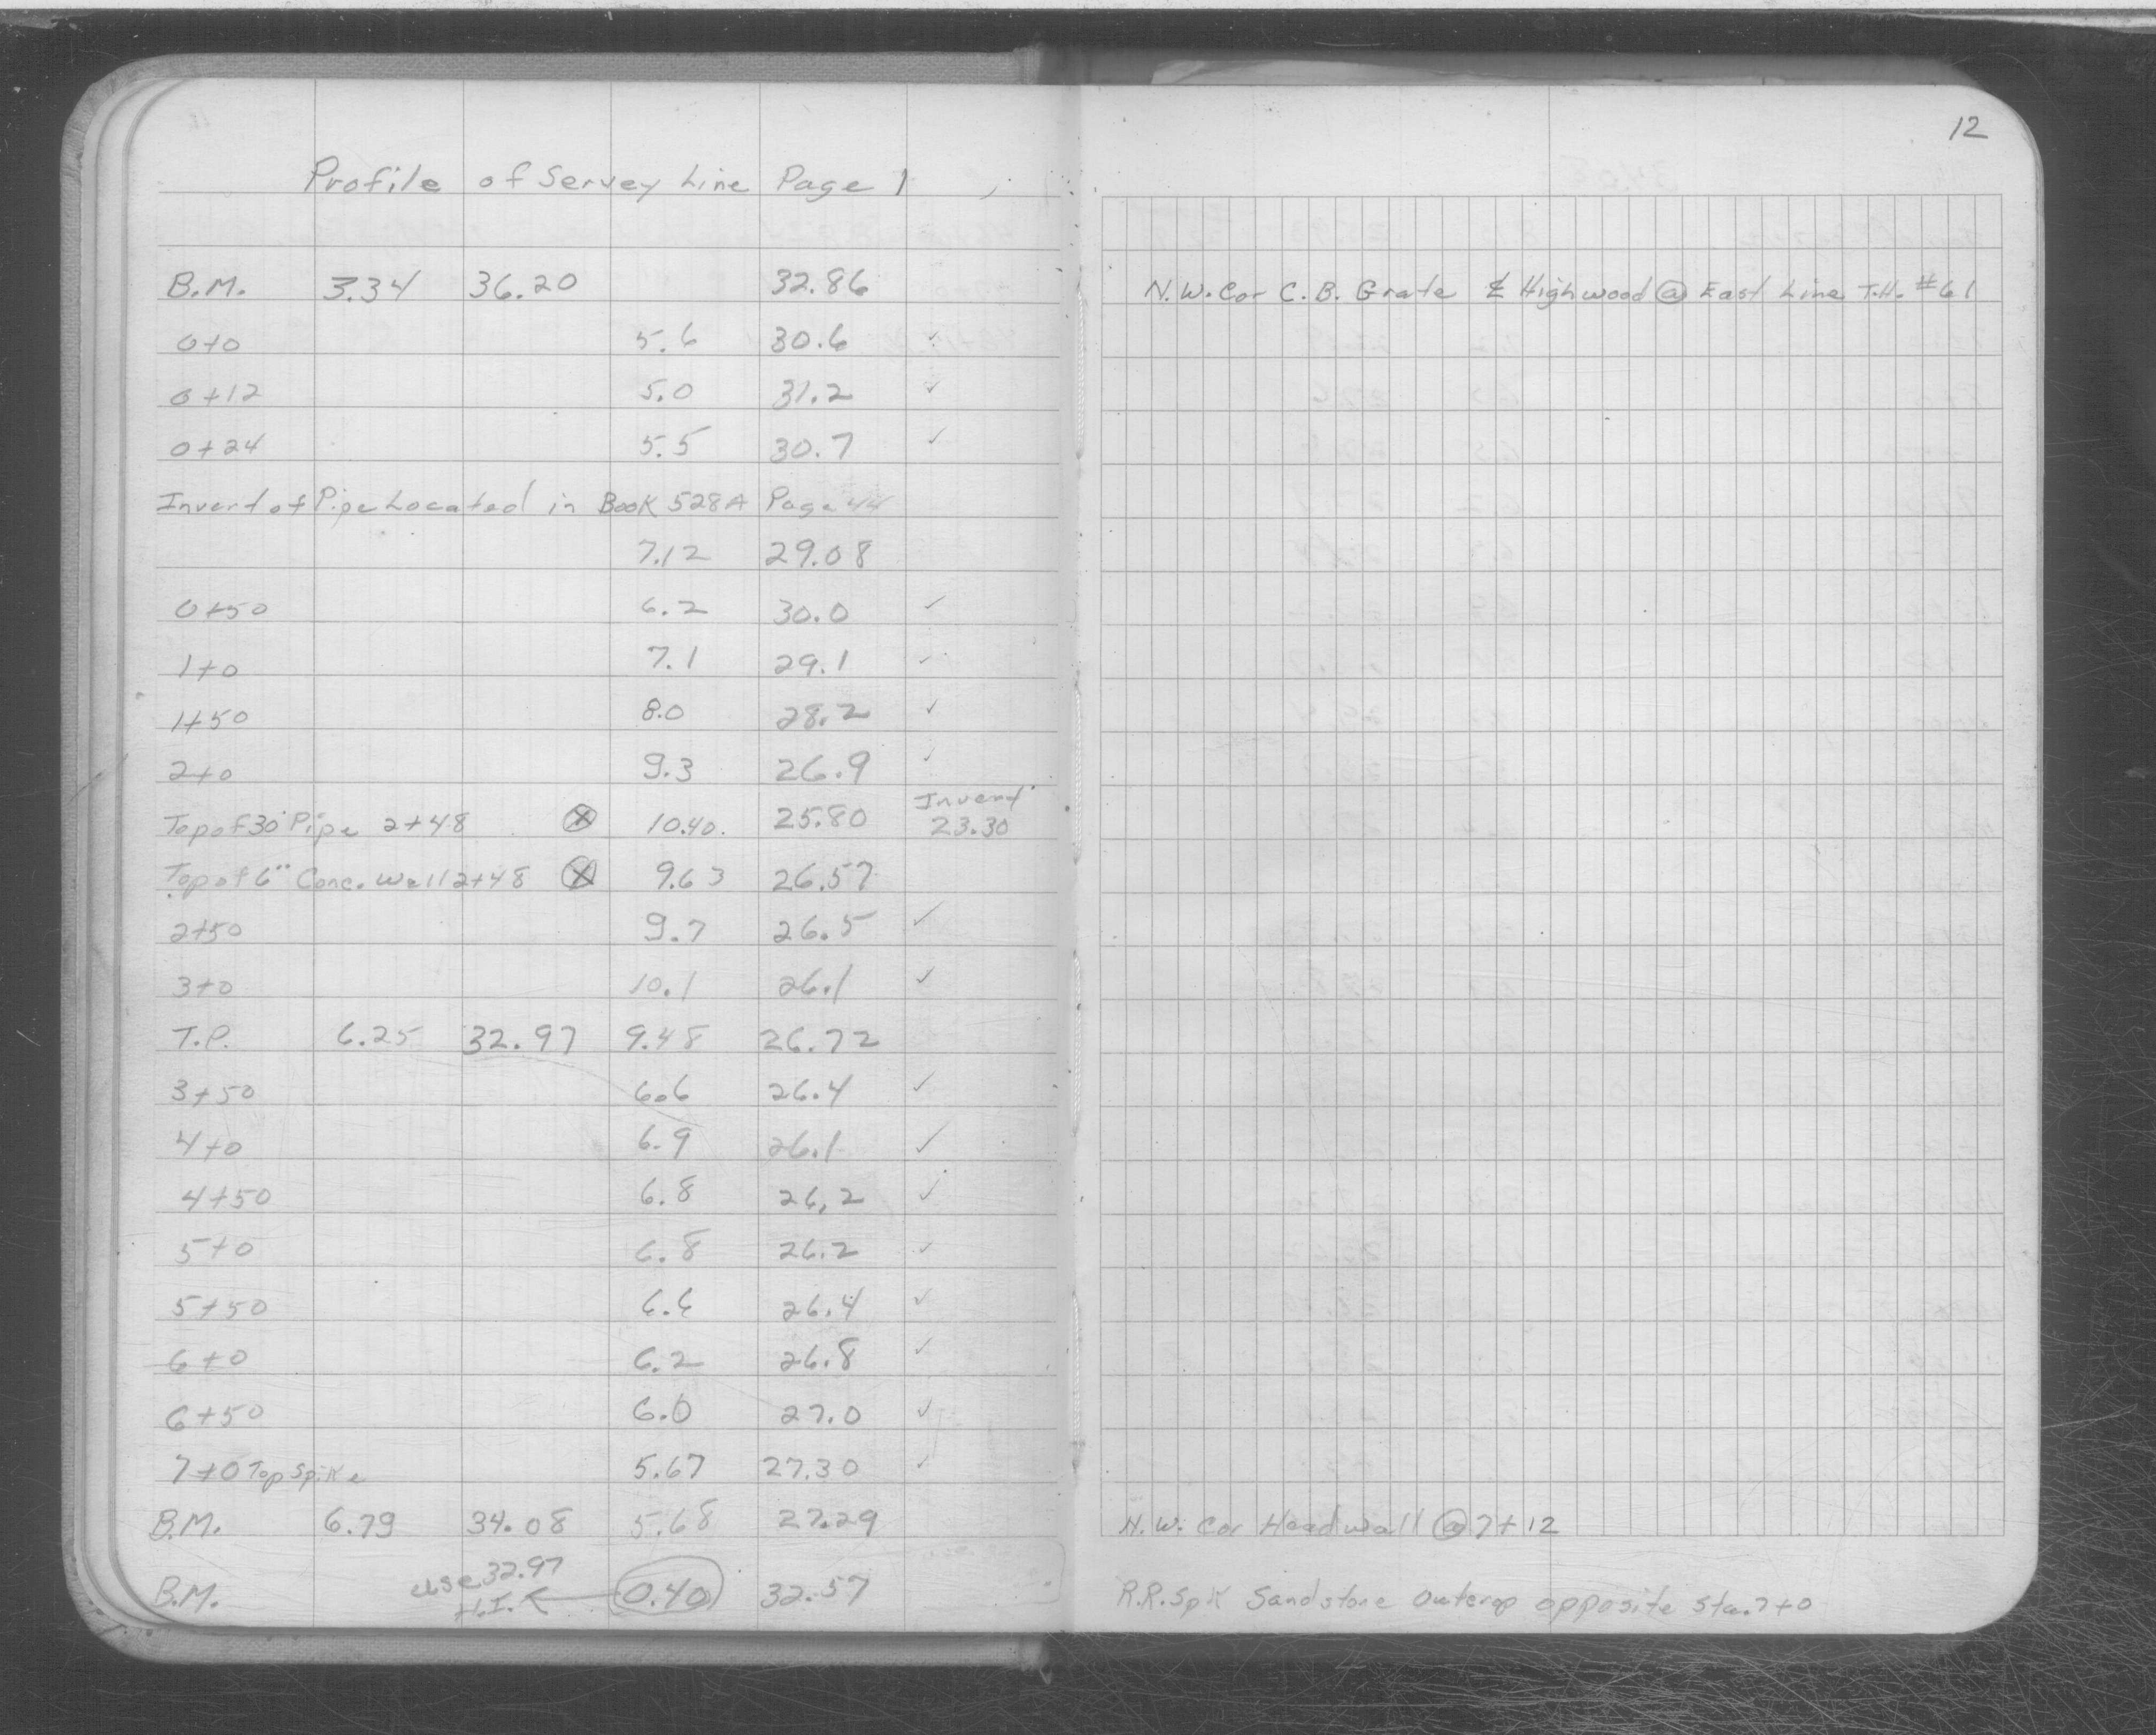 12
Profile of Servey Line Page 1
B.M. 3.34 36.20 32.86 N.W. Cor C.B. Grate ℄ Highwood @ East Line T.H. #61
0+0 5.6 30.6 ✓
0+12 5.0 31.2 ✓
0+24 5.5 30.7 ✓
Invert of Pipe Located in Book 528A Page 44
7.12 29.08
0+50 6.2 30.0 ✓
1+0 7.1 29.1 ✓
1+50 8.0 28.2 ✓
2+0 9.3 26.9 ✓
Top of 30" Pipe 2+48 ⊗ 10.40 25.80 Invert 23.30
Top of 6" Conc. Wall 2+48 ⊗ 9.63 26.57
2+50 9.7 26.5 ✓
3+0 10.1 26.1 ✓
T.P. 6.25 32.97 9.48 26.72
3+50 6.6 26.4 ✓
4+0 6.9 26.1 ✓
4+50 6.8 26.2 ✓
5+0 6.8 26.2 ✓
5+50 6.6 26.4 ✓
6+0 6.2 26.8 ✓
6+50 6.0 27.0 ✓
7+0 Top Spike 5.67 27.30 ✓
B.M. 6.79 34.08 5.68 27.29 N.W. Cor Headwall @ 7+12
B.M. use 32.97 H.I. ← 0.40 32.57 R.R. Spk Sandstone Outcrop opposite Sta. 7+0